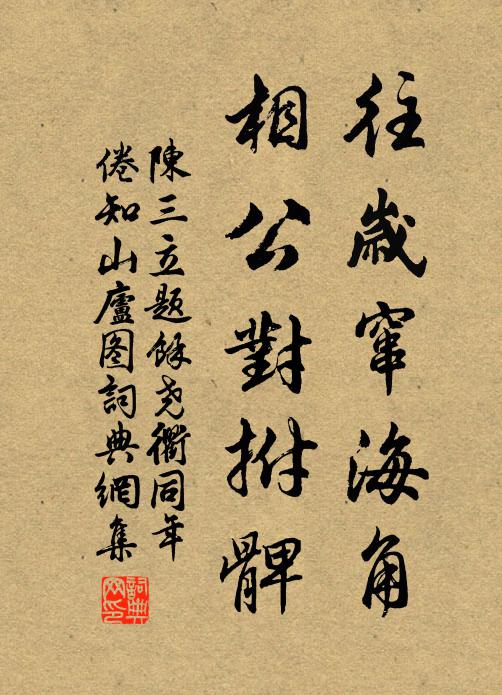 往歲窜海角
相公對拊髀
陳三立題餘尧衢同年
倦知山廬图詞典網集
詞典网印